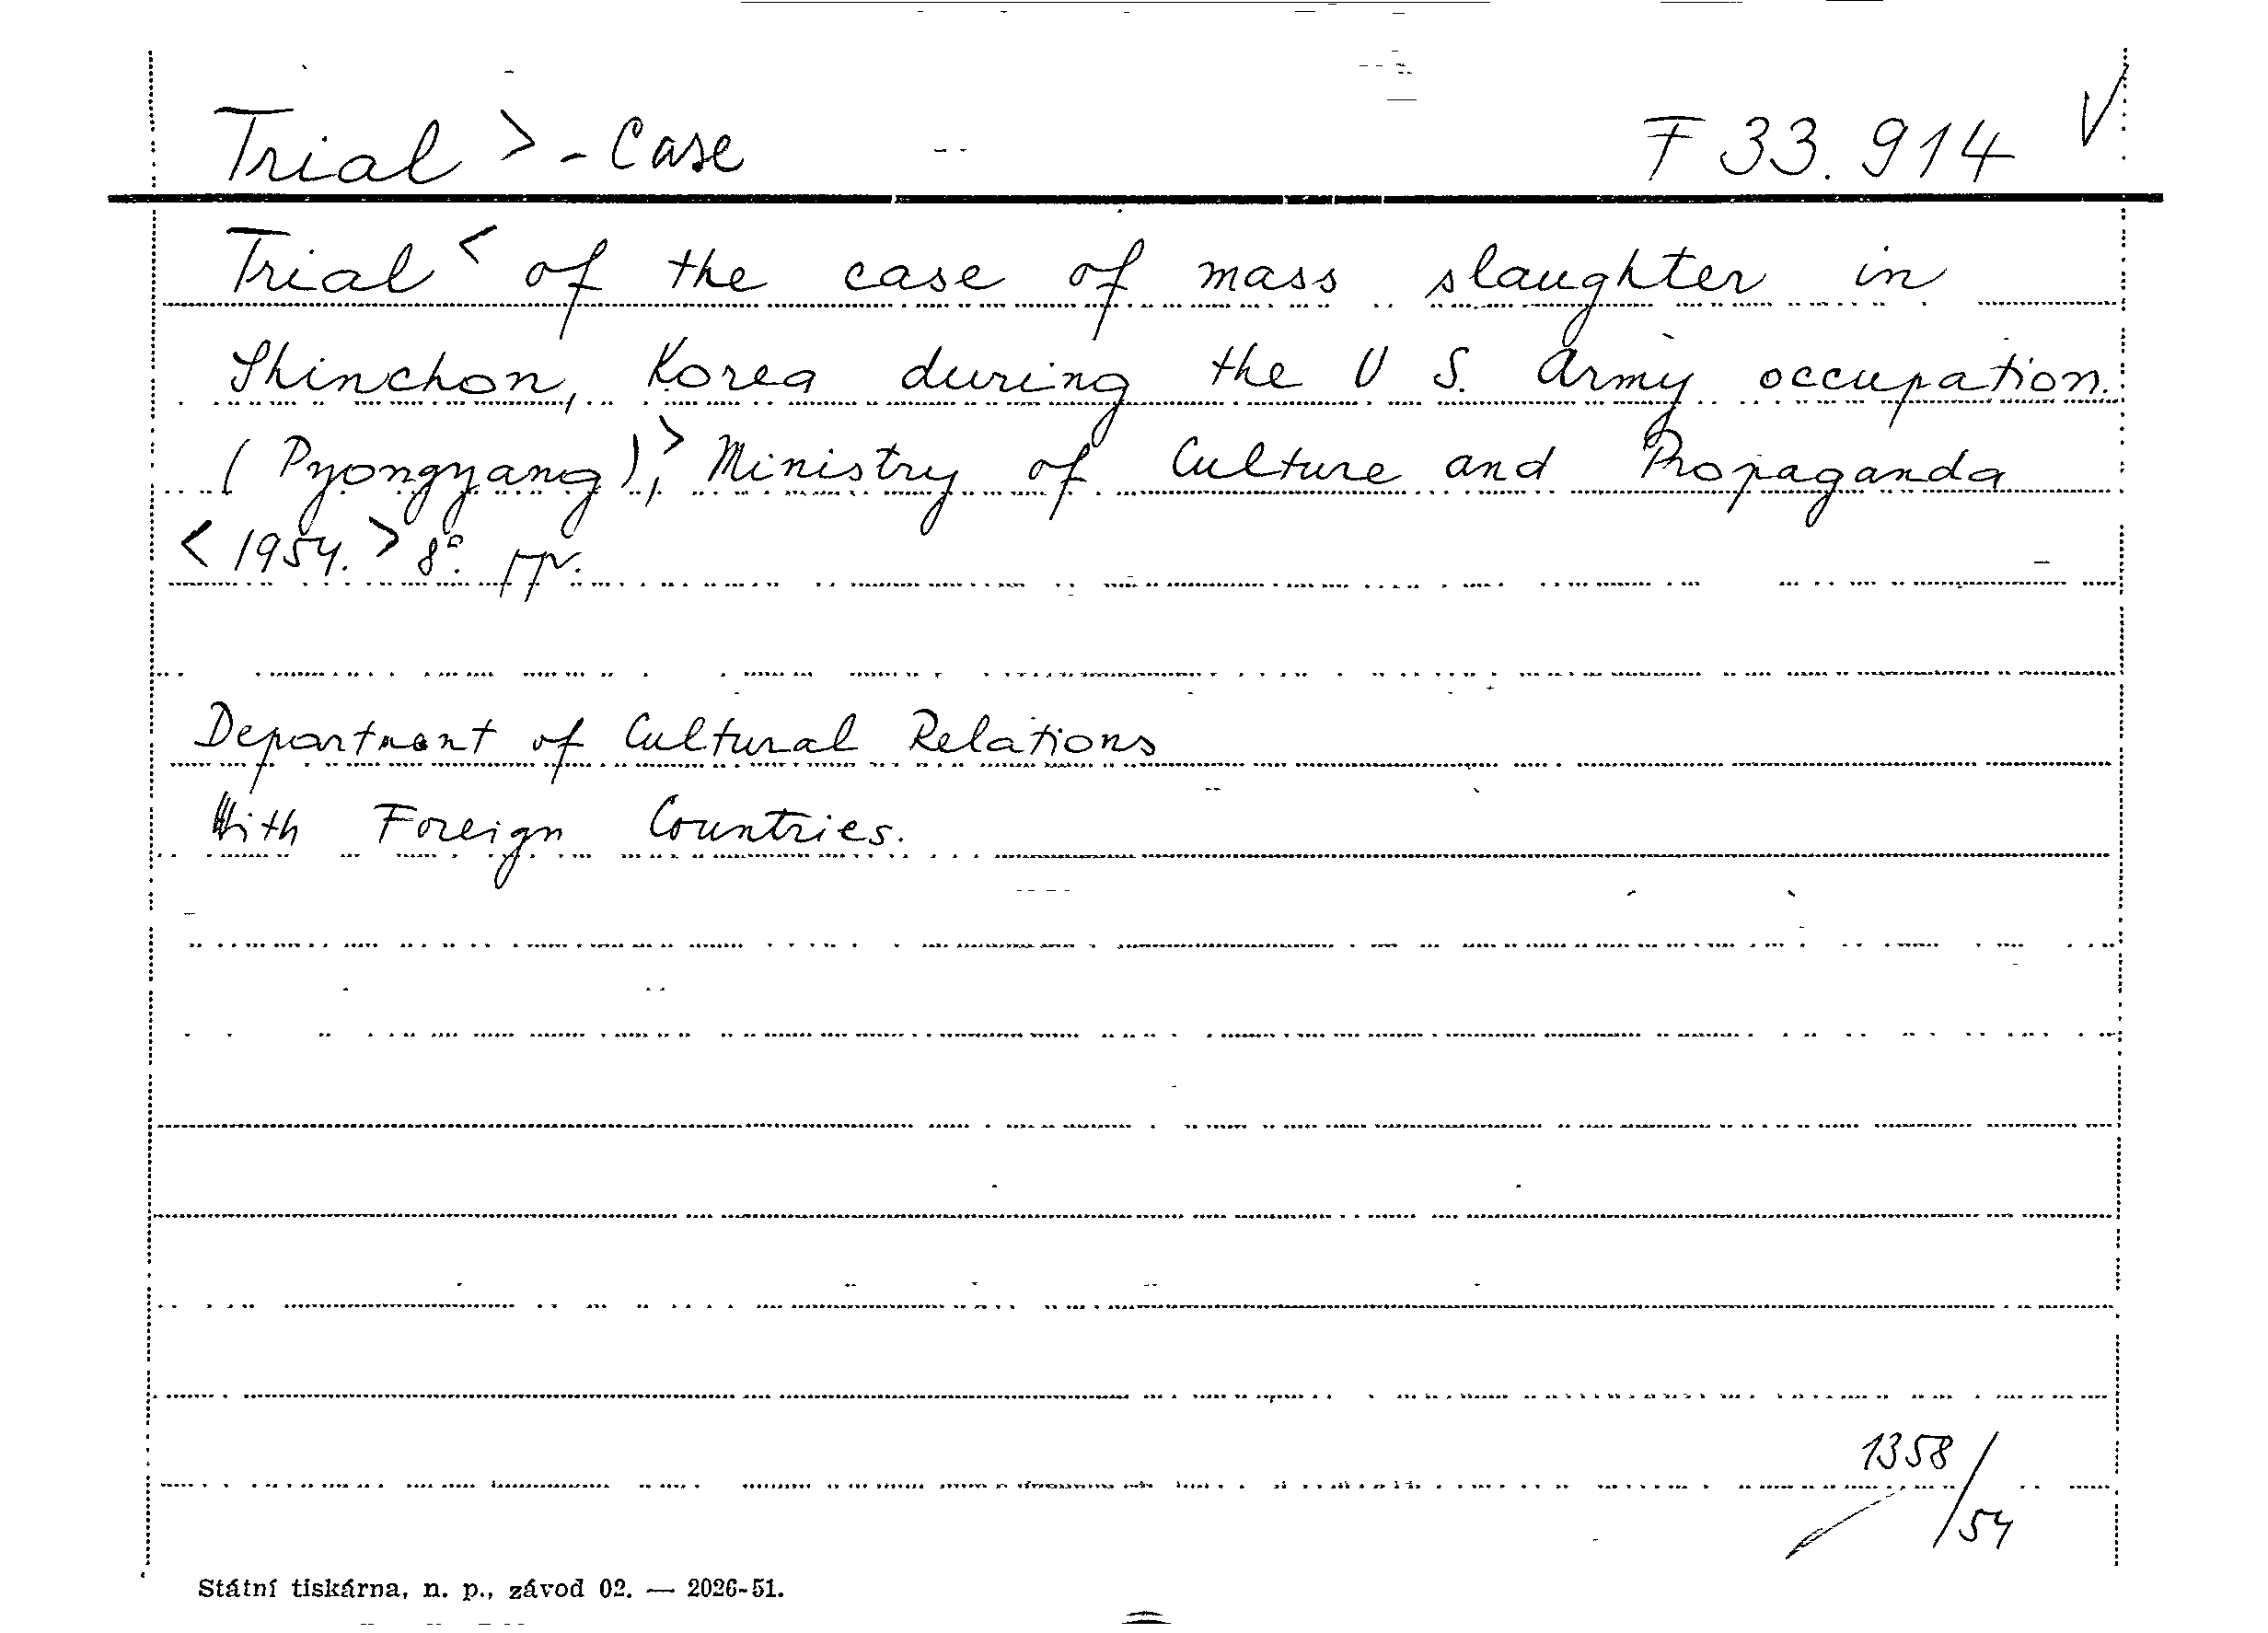 Trial > - Case F 33.914 V
Trial < of the case of mass slaughter in
Shinchon, Korea during the U S. Army occupation.
(Pyongyang), > Ministry of Culture and Propaganda
< 1954. > 8°. pp.
Department of Cultural Relations
With Foreign Countries.
1358/54
Státní tiskárna, n. p., závod 02. — 2026-51.